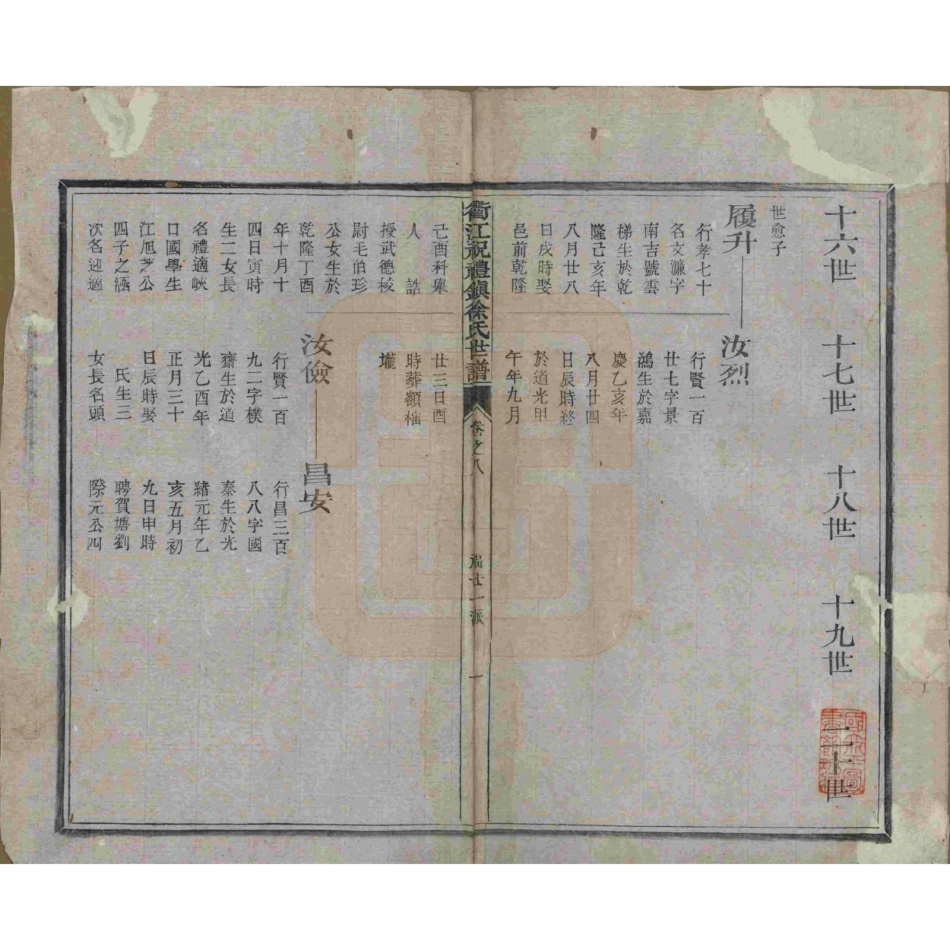 十六世
十七世
十八世
十九世
二十世
世愈子
履升
汝烈
行孝七十
名文濂字
南吉號雲
梯生於乾
隆己亥年
八月廿八
日戌時娶
邑前乾隆
行賢一百
廿七字景
鴻生於嘉
慶乙亥年
八月廿四
日辰時終
於道光甲
午年九月
衢江祝禮鎮徐氏世譜
卷之八
福廿一派
一
己酉科舉
人 誥
授武德校
尉毛伯珍
公女生於
乾隆丁酉
年十月十
四日寅時
生二女長
名禮適峽
口國學生
江旭芝公
四子之涵
次名迎適
廿三日酉
時葬顧柚
壠
汝儉
昌安
行賢一百
九二字樸
齋生於道
光乙酉年
正月三十
日辰時娶
氏生三
女長名頭
行昌三百
八八字國
泰生於光
緒元年乙
亥五月初
九日申時
聘賀塘劉
際元公四